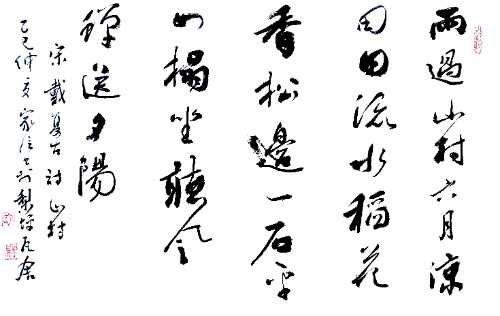 雨過山村六月涼
田田流水稻花
香松邊一石平
如榻坐聽風
蟬送夕陽
宋戴复古詩山村
乙巳仲夏家信